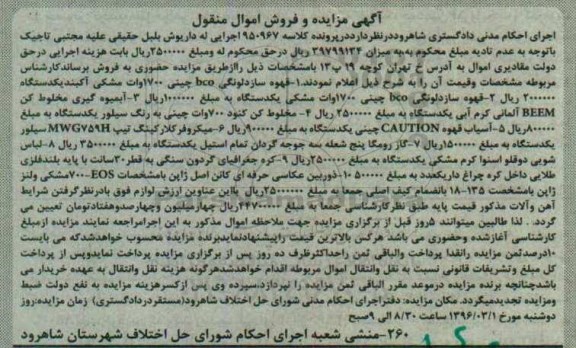 آگهی مزایده و فروش اموال منقول
اجرای احکام مدنی دادگستری شاهرود در نظر دارد در پرونده کلاسه ۹۵۰۹۶۷ اجرایی له داریوش بلبل حقیقی علیه مجتبی تاجیک
باتوجه به عدم تادیه مبلغ محکوم به به میزان ۳۹۷۹۹۱۳۴ ریال درحق محکوم له ومبلغ ۲۵۰۰۰۰۰ریال بابت هزینه اجرایی درحق
دولت مقادیری اموال به آدرس خ تهران کوچه ۱۹ پ۱۳ بامشخصات ذیل راازطریق مزایده حضوری به فروش برساندکارشناس
مربوطه مشخصات وقیمت آن را به شرح ذیل اعلام نمودند.۱-قهوه سازدلونگی bco چینی ۱۷۰۰وات مشکی آکبندیکدستگاه
۲۰۰۰۰۰۰ ریال ۲-قهوه سازدلونگی bco چینی ۱۷۰۰وات مشکی یکدستگاه به مبلغ ۱۰۰۰۰۰۰ریال ۳-آبمیوه گیری مخلوط کن
BEEM آلمانی کرم آبی یکدستگاه به مبلغ ۲۵۰۰۰۰۰ ریال ۴- مخلوط کن کنود ۷۰۰وات چینی به رنگ سیلور یکدستگاه به مبلغ
۸۰۰۰۰۰ریال ۵-آسیاب قهوه CAUTION چینی یکدستگاه به مبلغ ۹۰۰۰۰۰ریال ۶-میکروفرکلارکینگ تیپ MWGV۵۹H سیلور
یکدستگاه به مبلغ ۱۵۰۰۰۰۰ریال ۷-گاز رومیگا پنج شعله سه جوجه گردان تمام استیل یکدستگاه به مبلغ ۳۵۰۰۰۰۰ ریال ۸-لباس
شویی دوقلو اسنوا کرم مشکی یکدستگاه به مبلغ ۲۵۰۰۰۰۰ریال ۹-کره جغرافیای گردون سنگی به قطر ۳۰سانت با پایه بلندفلزی
طلایی داخل کره چراغ داریکعدد به مبلغ ۵۰۰۰۰۰ ۱۰-دوربین عکاسی حرفه ای کانن اصل ژاپن بامشخصات EOS-۷۰۰مشکی ولنز
ژاپن بامشخصه ۱۳۵-۱۸ بانضمام کیف اصلی جمعا به مبلغ ۲۵۰۰۰۰۰۰ریال بااین عناوین ارزش لوازم فوق بادرنظرگرفتن شرایط
آهن وآلات مذکور قیمت پایه طبق نظرکارشناسی جمعا به مبلغ ۴۴۷۰۰۰۰۰ریال چهارمیلیون وچهارصدوهفتادتومان تعیین می
گردد. . لذا طالبین میتوانند ۵روز قبل از برگزاری مزایده جهت ملاحظه اموال مذکور به این اجرامراجعه نمایند مزایده ازمبلغ
کارشناسی آغازشده وحضوری می باشد هرکس بالاترین قیمت راپیشنهادنمایدبرنده مزایده محسوب خواهدشدکه می بایست
۱۰درصدثمن مزایده رانقدا پرداخت والباقی ثمن راحداکثرظرف ده روز پس از برگزاری مزایده پرداخت نمایدوپس از پرداخت
کل مبلغ وتشریفات قانونی نسبت به نقل وانتقال اموال مربوطه اقدام خواهدشدهرگونه هزینه نقل وانتقال به عهده خریدار می
باشدچنانچه برنده مزایده درموعد مقرر الباقی ثمن مزایده را نپردازد،سپرده وی پس ازکسرهزینه مزایده به نفع دولت ضبط
ومزایده تجدیدمیگردد. مکان مزایده: دفتراجرای احکام مدنی شورای حل اختلاف شاهرود(مستقردردادگستری) زمان مزایده:روز
دوشنبه مورخ ۱۳۹۶/۰۳/۱ ساعت ۸/۳۰ الی ۹صبح
۲۶۰-منشی شعبه اجرای احکام شورای حل اختلاف شهرستان شاهرود